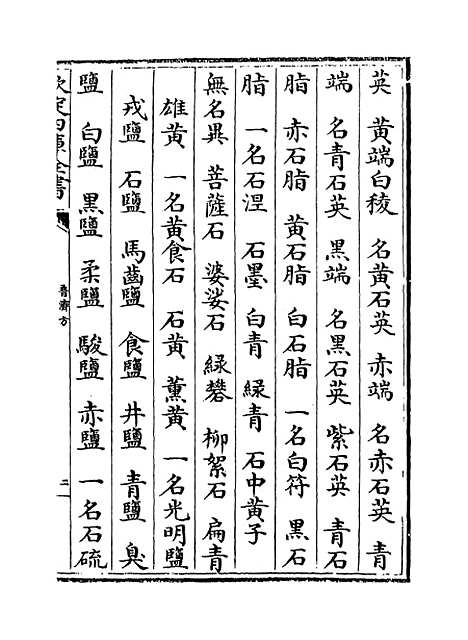 英 黄端白稜 名黄石英 赤端 名赤石英 青
端 名青石英 黑端 名黑石英 紫石英 青石
脂 赤石脂 黄石脂 白石脂 一名白符 黑石
脂 一名石涅 石墨 白青 緑青 石中黄子
無名異 菩薩石 婆娑石 緑礬 柳絮石 扁青
雄黄 一名黄食石 石黄 薰黄 一名光明鹽
戎鹽 石鹽 馬齒鹽 食鹽 井鹽 青鹽 臭
鹽 白鹽 黑鹽 柔鹽 駿鹽 赤鹽 一名石硫
欽定四庫全書
普濟方
二